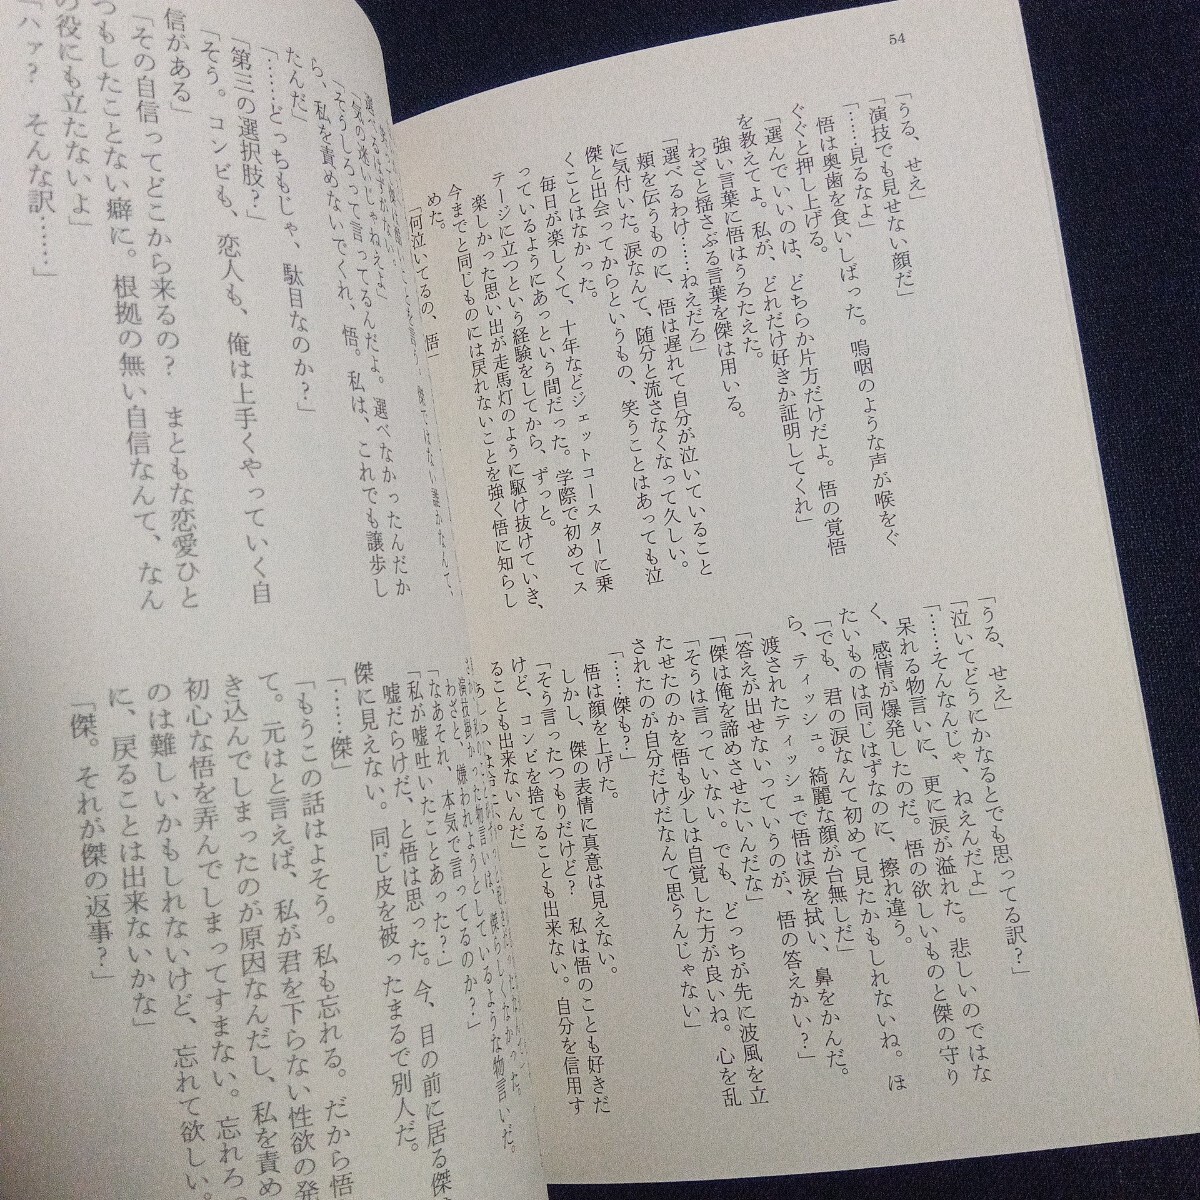 54
「うる、せえ」
「演技でも見せない顔だ」
「……見るなよ」
悟は奥歯を食いしばった。嗚咽のような声が喉をぐ
ぐぐと押し上げる。
「選んでいいのは、どちらか片方だけだよ。悟の覚悟
を教えてよ。私が、どれだけ好きか証明してくれ」
強い言葉に悟はうろたえた。
わざと揺さぶる言葉を傑は用いる。
「選べるわけ……ねえだろ」
頬を伝うものに、悟は遅れて自分が泣いていること
に気付いた。涙なんて、随分と流さなくなって久しい。
傑と出会ってからというもの、笑うことはあっても泣
くことはなかった。
毎日が楽しくて、十年などジェットコースターに乗
っているようにあっという間だった。学際で初めてス
テージに立つという経験をしてから、ずっと。
楽しかった思い出が走馬灯のように駆け抜けていき、
今までと同じものには戻れないことを強く悟に知らし
めた。
「何泣いてるの、悟」
「うる、せえ」
「泣いてどうにかなるとでも思ってる訳？」
「……そんなんじゃ、ねえんだよ」
呆れる物言いに、更に涙が溢れた。悲しいのではな
く、感情が爆発したのだ。悟の欲しいものと傑の守り
たいものは同じはずなのに、擦れ違う。
「でも、君の涙なんて初めて見たかもしれないね。ほ
ら、ティッシュ。綺麗な顔が台無しだ」
渡されたティッシュで悟は涙を拭い、鼻をかんだ。
「答えが出せないっていうのが、悟の答えかい？」
「傑は俺を諦めさせたいんだな」
「そうは言っていない。でも、どっちが先に波風を立
たせたのかを悟も少しは自覚した方が良いね。心を乱
されたのが自分だけだなんて思うんじゃない」
「……傑も？」
悟は顔を上げた。
しかし、傑の表情に真意は見えない。
「そう言ったつもりだけど？　私は悟のことも好きだ
けど、コンビを捨てることも出来ない。自分を信用す
ることも出来ないんだ」
「気の迷いじゃねえよ」
「そうしろって言ってるんだよ。選べなかったんだか
ら、私を責めないでくれ、悟。私は、これでも譲歩し
たんだ」
「……どっちもじゃ、駄目なのか？」
「第三の選択肢？」
「そう。コンビも、恋人も、俺は上手くやっていく自
信がある」
「その自信ってどこから来るの？　まともな恋愛ひと
つもしたことない癖に。根拠の無い自信なんて、なん
の役にも立たないよ」
「ハァ？　そんな訳……」
わざと、嫌われようとしているような物言いだ。
「なあそれ、本気で言ってるのか？」
「私が嘘吐いたことあった？」
嘘だらけだ、と悟は思った。今、目の前に居る傑
傑に見えない。同じ皮を被ったまるで別人だ。
「……傑」
「もうこの話はよそう。私も忘れる。だから悟
て。元はと言えば、私が君を下らない性欲の発
き込んでしまったのが原因なんだし、私を責め
初心な悟を弄んでしまってすまない。忘れろっ
のは難しいかもしれないけど、忘れて欲しい。
に、戻ることは出来ないかな」
「傑。それが傑の返事？」